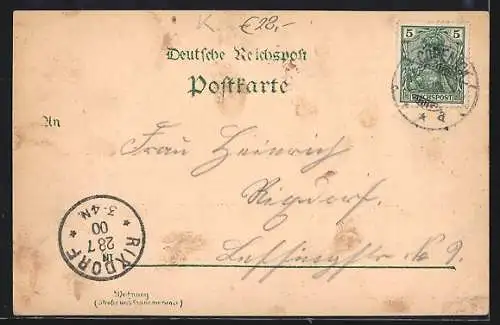 K. €28,-
Deutsche Reichspost
Postkarte
5 5
REICHSPOST
* a
An
Frau Heinrich
Rixdorf.
No 9.
RIXDORF
* 3-4N. *
28 7
00
Wohnung
(Straße und Hausnummer)